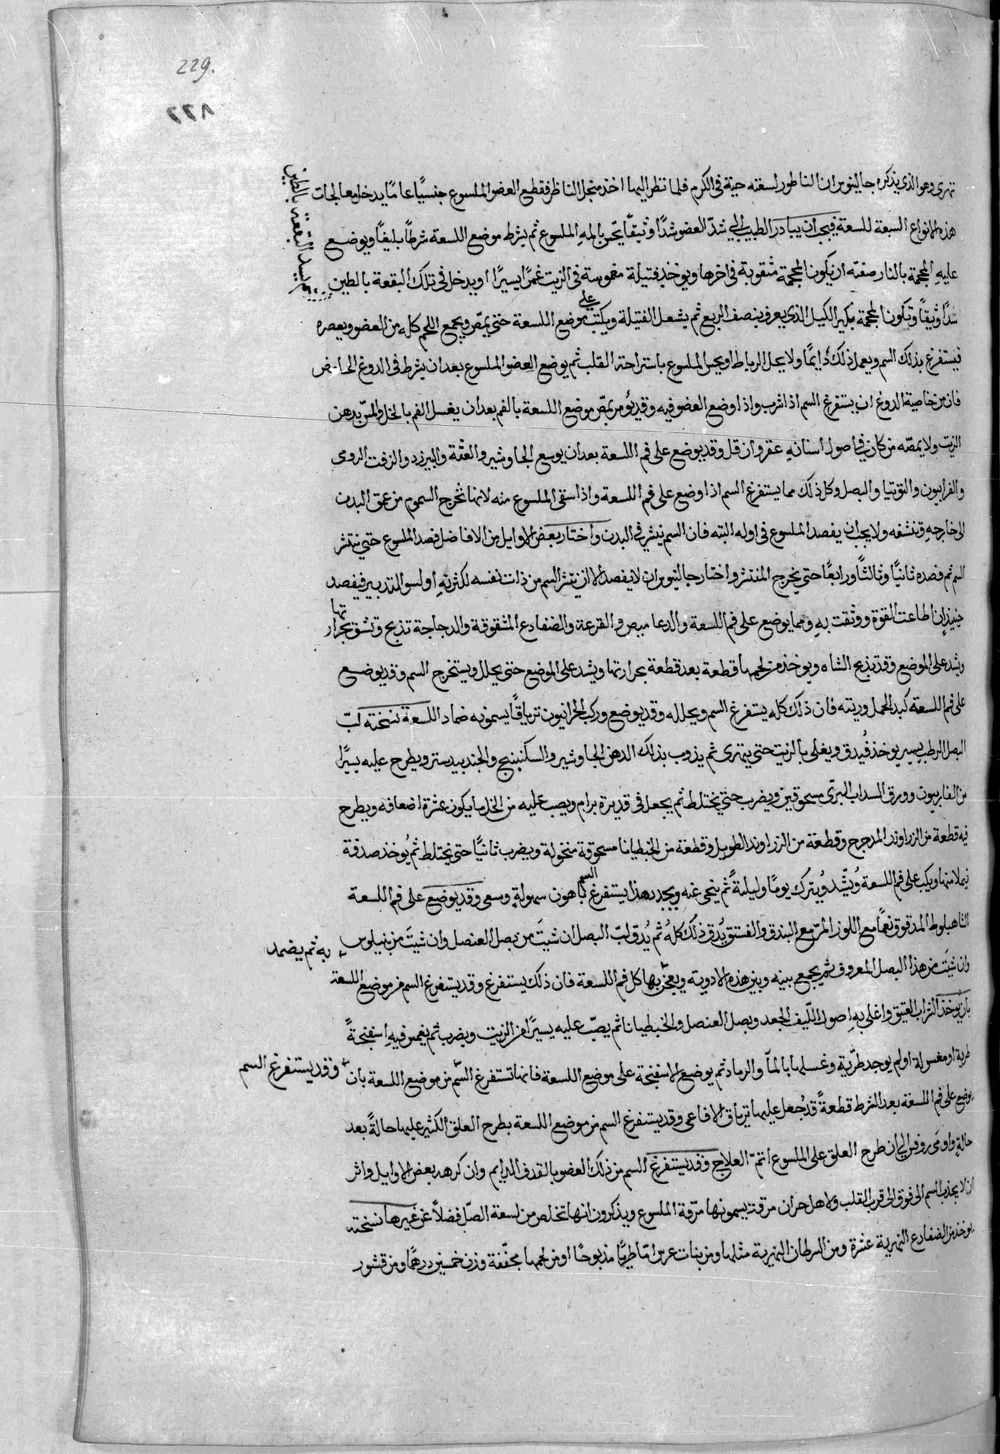 229.
٢٢٨
نهرى وهو الذى يذكره جالينوس ان الناطور لسعته حية فى الكرم فلما نظر اليها اخذ منجل الناظر فقطع العضو الملسوع جنسيًا عامًا يدخل معالجات
هذه الانواع السبعة للسعة فيجب ان يبادر الطبيب الى شدّ العضو شدًا وثيقًا يحس بالمه الملسوع ثم يشرط موضع اللسعة شرطًا بليغًا ويوضع
عليه المحجمة بالنار صفته ان يكون المحجمة مثقوبة فى اخرها ويوخذ فتيلة مغموسة فى الزيت غمرًا يسيرًا ويدخل فى تلك البقعة بالطين
شدًا وثيقًا وتكون المحجمة الكيل الذى يعرف بنصف الربع ثم يشعل الفتيلة ويكبّ على موضع اللسعة حتى يمصّ ويجمع اللحم كله من العضو ويعصره
فيستفرغ بذلك السم ويعمل ذلك دايمًا ولا يحل الرباط او يحس الملسوع باستراحة القلب ثم يوضع العضو الملسوع بعد ان يشرط فى الدوغ الحامض
فان من خاصية الدوغ ان يستفرغ السم اذا شرب واذا وضع العضو فيه وقد يؤمر بمصّ موضع اللسعة بالفم بعد ان يغسل الفم بالخل والمس بدهن
الزيت ولا يمصّه من كان فى اصول اسنانه عقر وان قل وقد يوضع على فم اللسعة بعد ان يوسع الجاوشير و والزفت الرومى
والفربيون والتوتيا والبصل وكل ذلك مما يستفرغ السم اذا وضع على فم اللسعة واذا سقى الملسوع منه لانها تخرج السموم من عمق البدن
الى خارجه وتنشفه ولا يجب ان يفصد الملسوع فى اوله البته فان السم ينثر فى البدن واختار بعض الاوايل من الافاضل فصد الملسوع حتى ينتثر
السم ثم فصده ثانيًا وثالثًا ورابعًا حتى يخرج المنتثر واختار جالينوس ان لا يفصد الا ان ينتثر السم من ذات نفسه لكثرته او لسو التدبير فيفصد
حينيذ ان اطاعت القوة ووثقت به ومما يوضع على فم اللسعة والضفادع المشقوقة والدجاجة تذبح وتشق بحرارتها
ويشد على الموضع وقد تذبح الشاه ويوخذ من لحمها قطعة بعد قطعة بحرارتها ويشد على الموضع حتى يحلل ويستخرج السم وقد يوضع
على فم اللسعة كبد الحمل وريته فان ذلك كله يستفرغ السم ويحلله وقد يوضع وركب الحرانيون ترياقًا يسمونه ضماد اللسعة نسخته لبّ
البصل الرطب يسير يوخذ فيدق ويغلى بالزيت حتى يتهرى ثم يذوب بذلك الدهن الجاوشير والسكبينج والجندبيدستر ويطرح عليه يسيرًا
من الفاربيون وورق السداب البرّى مسحوقين ويضرب حتى يختلط ثم يجعل فى قديرة برام ويصب عليه من الخل ما يكون عشرة اضعافه ويطرح
فيه قطعة من الزراوند المدحرج وقطعة من الزراوند الطويل وقطعة من الخنطيانا مسحوقة منخولة ويضرب ثانيًا حتى يختلط ثم يُوخذ صدفة
فيملا منها ويكب على فم اللسعة ويُشّد ويُترك يومًا وليلةً ثم ينحى عنه ويجدد هذا يستفرغ السم باهون سهولةٍ وسعى وقد يوضع على فم اللسعة
الشاهبلوط المدقوق نعمًا مع اللوز المرّ مع البندق والفستق يُدق ذلك كله ثم يُدق لبّ البصل ان شيت من بصل العنصل وان شيت من بنبلوس
وان شيت من هذا البصل المعروف ثم يجمع بينه وبين هذه الادوية ويعجن بها كل فم اللسعة به ثم يضمد فان ذلك يستفرغ وقد يستفرغ السم من موضع اللسعة
بان يُوخذ التراب العتيق واغلى به اصول اللّيف الجعد وبصل العنصل والخنطيانا ثم يصبّ عليه يسيرًا من الزيت ويضرب ثم يغمس فيه اسفنجةً
طرية او مغسولة او لم يوجد طرّية وغسلها بالماء والرماد ثم يوضع الاسفنجة على موضع اللسعة فانها تستفرغ السّم من موضع اللسعة بان وقد يستفرغ السم
يوضع على فم اللسعة بعد الشرط قطعةً قد جُعل عليها ترياق الافاعى وقد يستفرغ السم من موضع اللسعة بطرح العلق الكثير عليها حالةً بعد
حالةٍ واومى روفس الى ان طرح العلق على الملسوع اتمّ العلاج وقد يستفرغ السم من ذلك العضو بالقدف الدايم وان كرهه بعض الاوايل واثر
ان لا يجذب السم الى فوق الى قرب القلب ولاهل حران مرقة يسمونها مرّقة الملسوع ويذكرون انها تخلص من لسعة الصلّ فضلاً عن غيرها نسخته
يوخذ من الضفادع النهرية عشرة ومن السرطان النهرية مثلها ومن بنات عرس امّا طريًا مذبوحًا او من لحمها مجففة وزن خمسين درهمًا ومن قشور